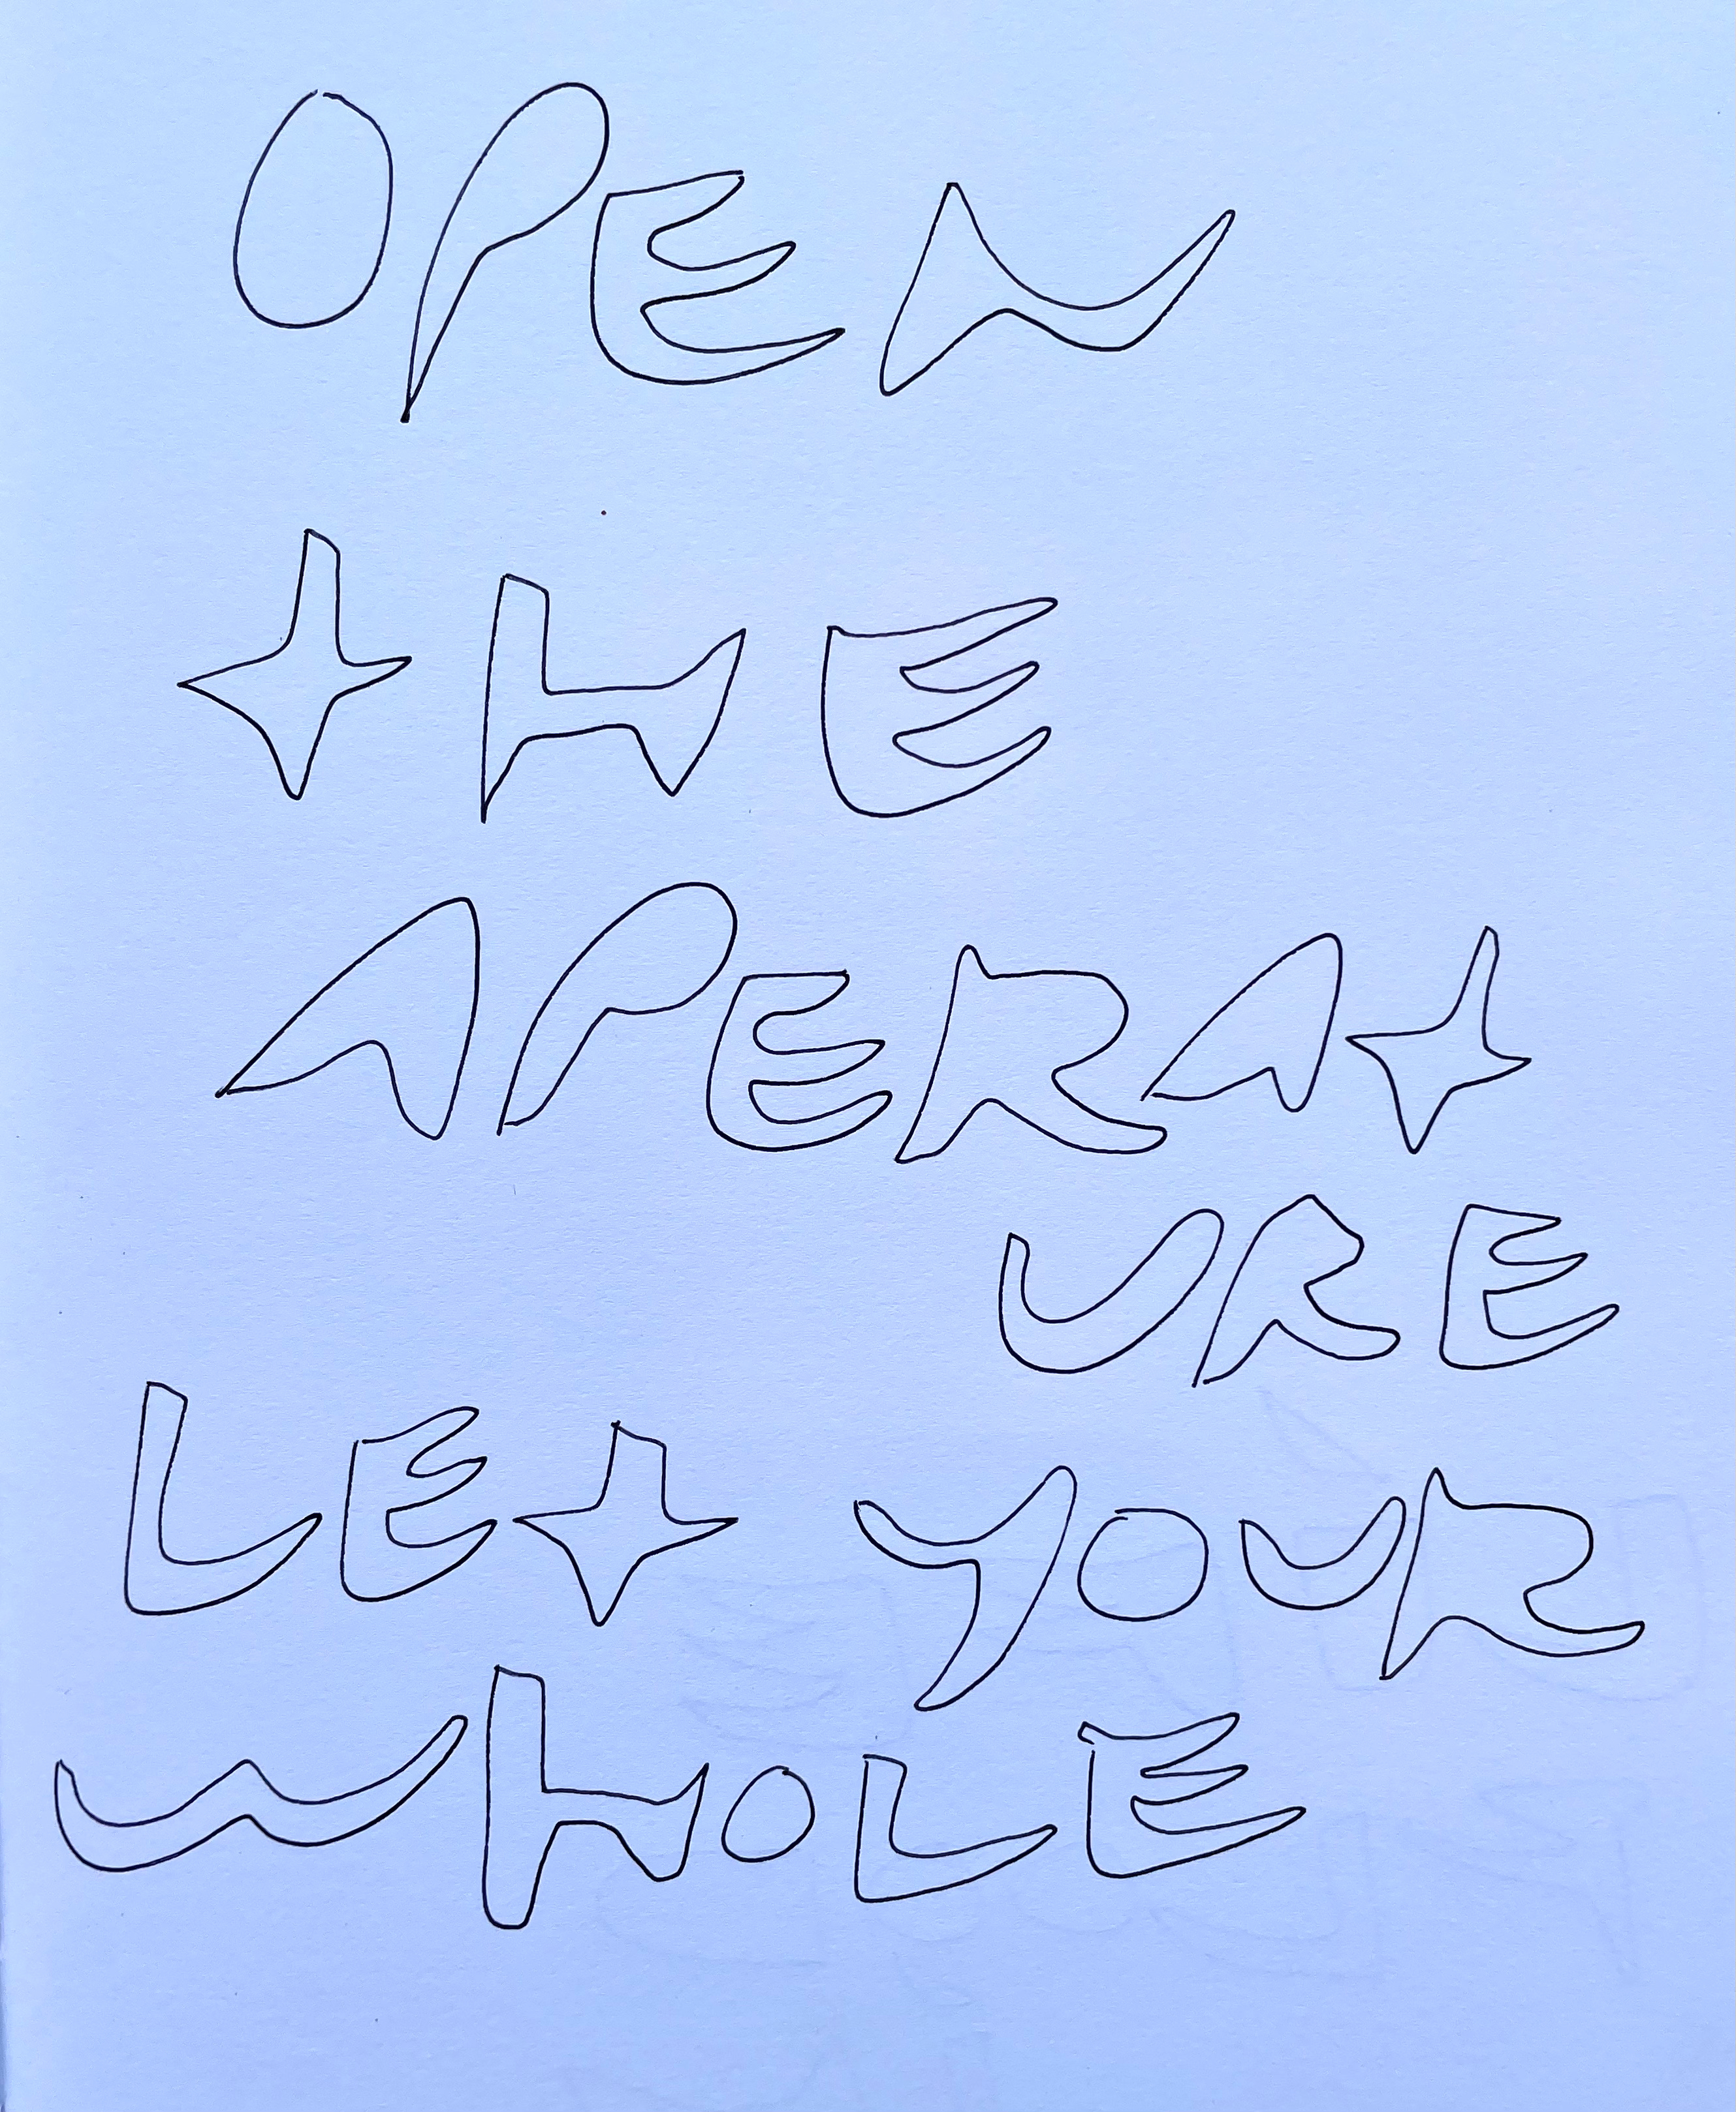 OPEN
THE
APERAT
URE
LET YOUR
WHOLE